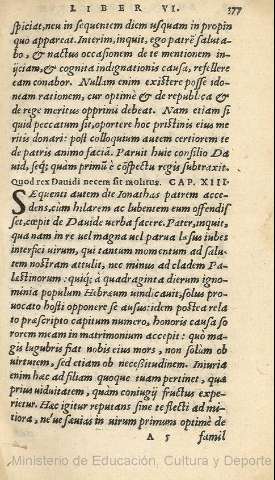 LIBER VI. 377
spiciat, neu in sequentem diem usquam in propin
quo appareat. Interim, inquit, ego patrē saluta-
bo, & nactus occasionem de te mentionem in-
ijciam, & cognita indignationis causa, refellere
eam conabor. Nullam enim existere posse ido-
neam rationem, cur optimè & de republica &
de rege meritus opprimi debeat. Nam etiam si
quid peccatum sit, oportere hoc pristinis eius me
ritis donari: post colloquium autem certiorem te
de patris animo faciā. Paruit huic consilio Da
uid, seq; quàm primū è cōspectu regis subtraxit.
Quod rex Dauidi necem sit molitus. CAP. XIII.
SEquenti autem die Ionathas patrem acce-
dens, cùm hilarem ac lubentem eum offendis
set, cœpit de Dauide verba facere. Pater, inquit,
qua nam in re uel magna uel parua læsus iubes
interfici uirum, qui tantum momentum ad salu-
tem nostram attulit, nec minus ad cladem Pa-
læstinorum: quiq; à quadraginta dierum igno-
minia populum Hebræum uindicauit, solus pro-
uocato hosti opponere se ausus: idem postea rela
to præscripto capitum numero, honoris causa so
rorem meam in matrimonium accepit: quò ma-
gis lugubris fiat nobis eius mors, non solùm ob
uirtutem, sed etiam ob necessitudinem. Iniuria
enim hæc ad filiam quoque tuam pertinet, quæ
prius uiduitatem, quàm coniugij fructus expe-
rietur. Hæc igitur reputans sine te flecti ad mi-
tiora, ne'ue sæuias in uirum primùm optimè de
A 5 famil
Ministerio de Educación, Cultura y Deporte